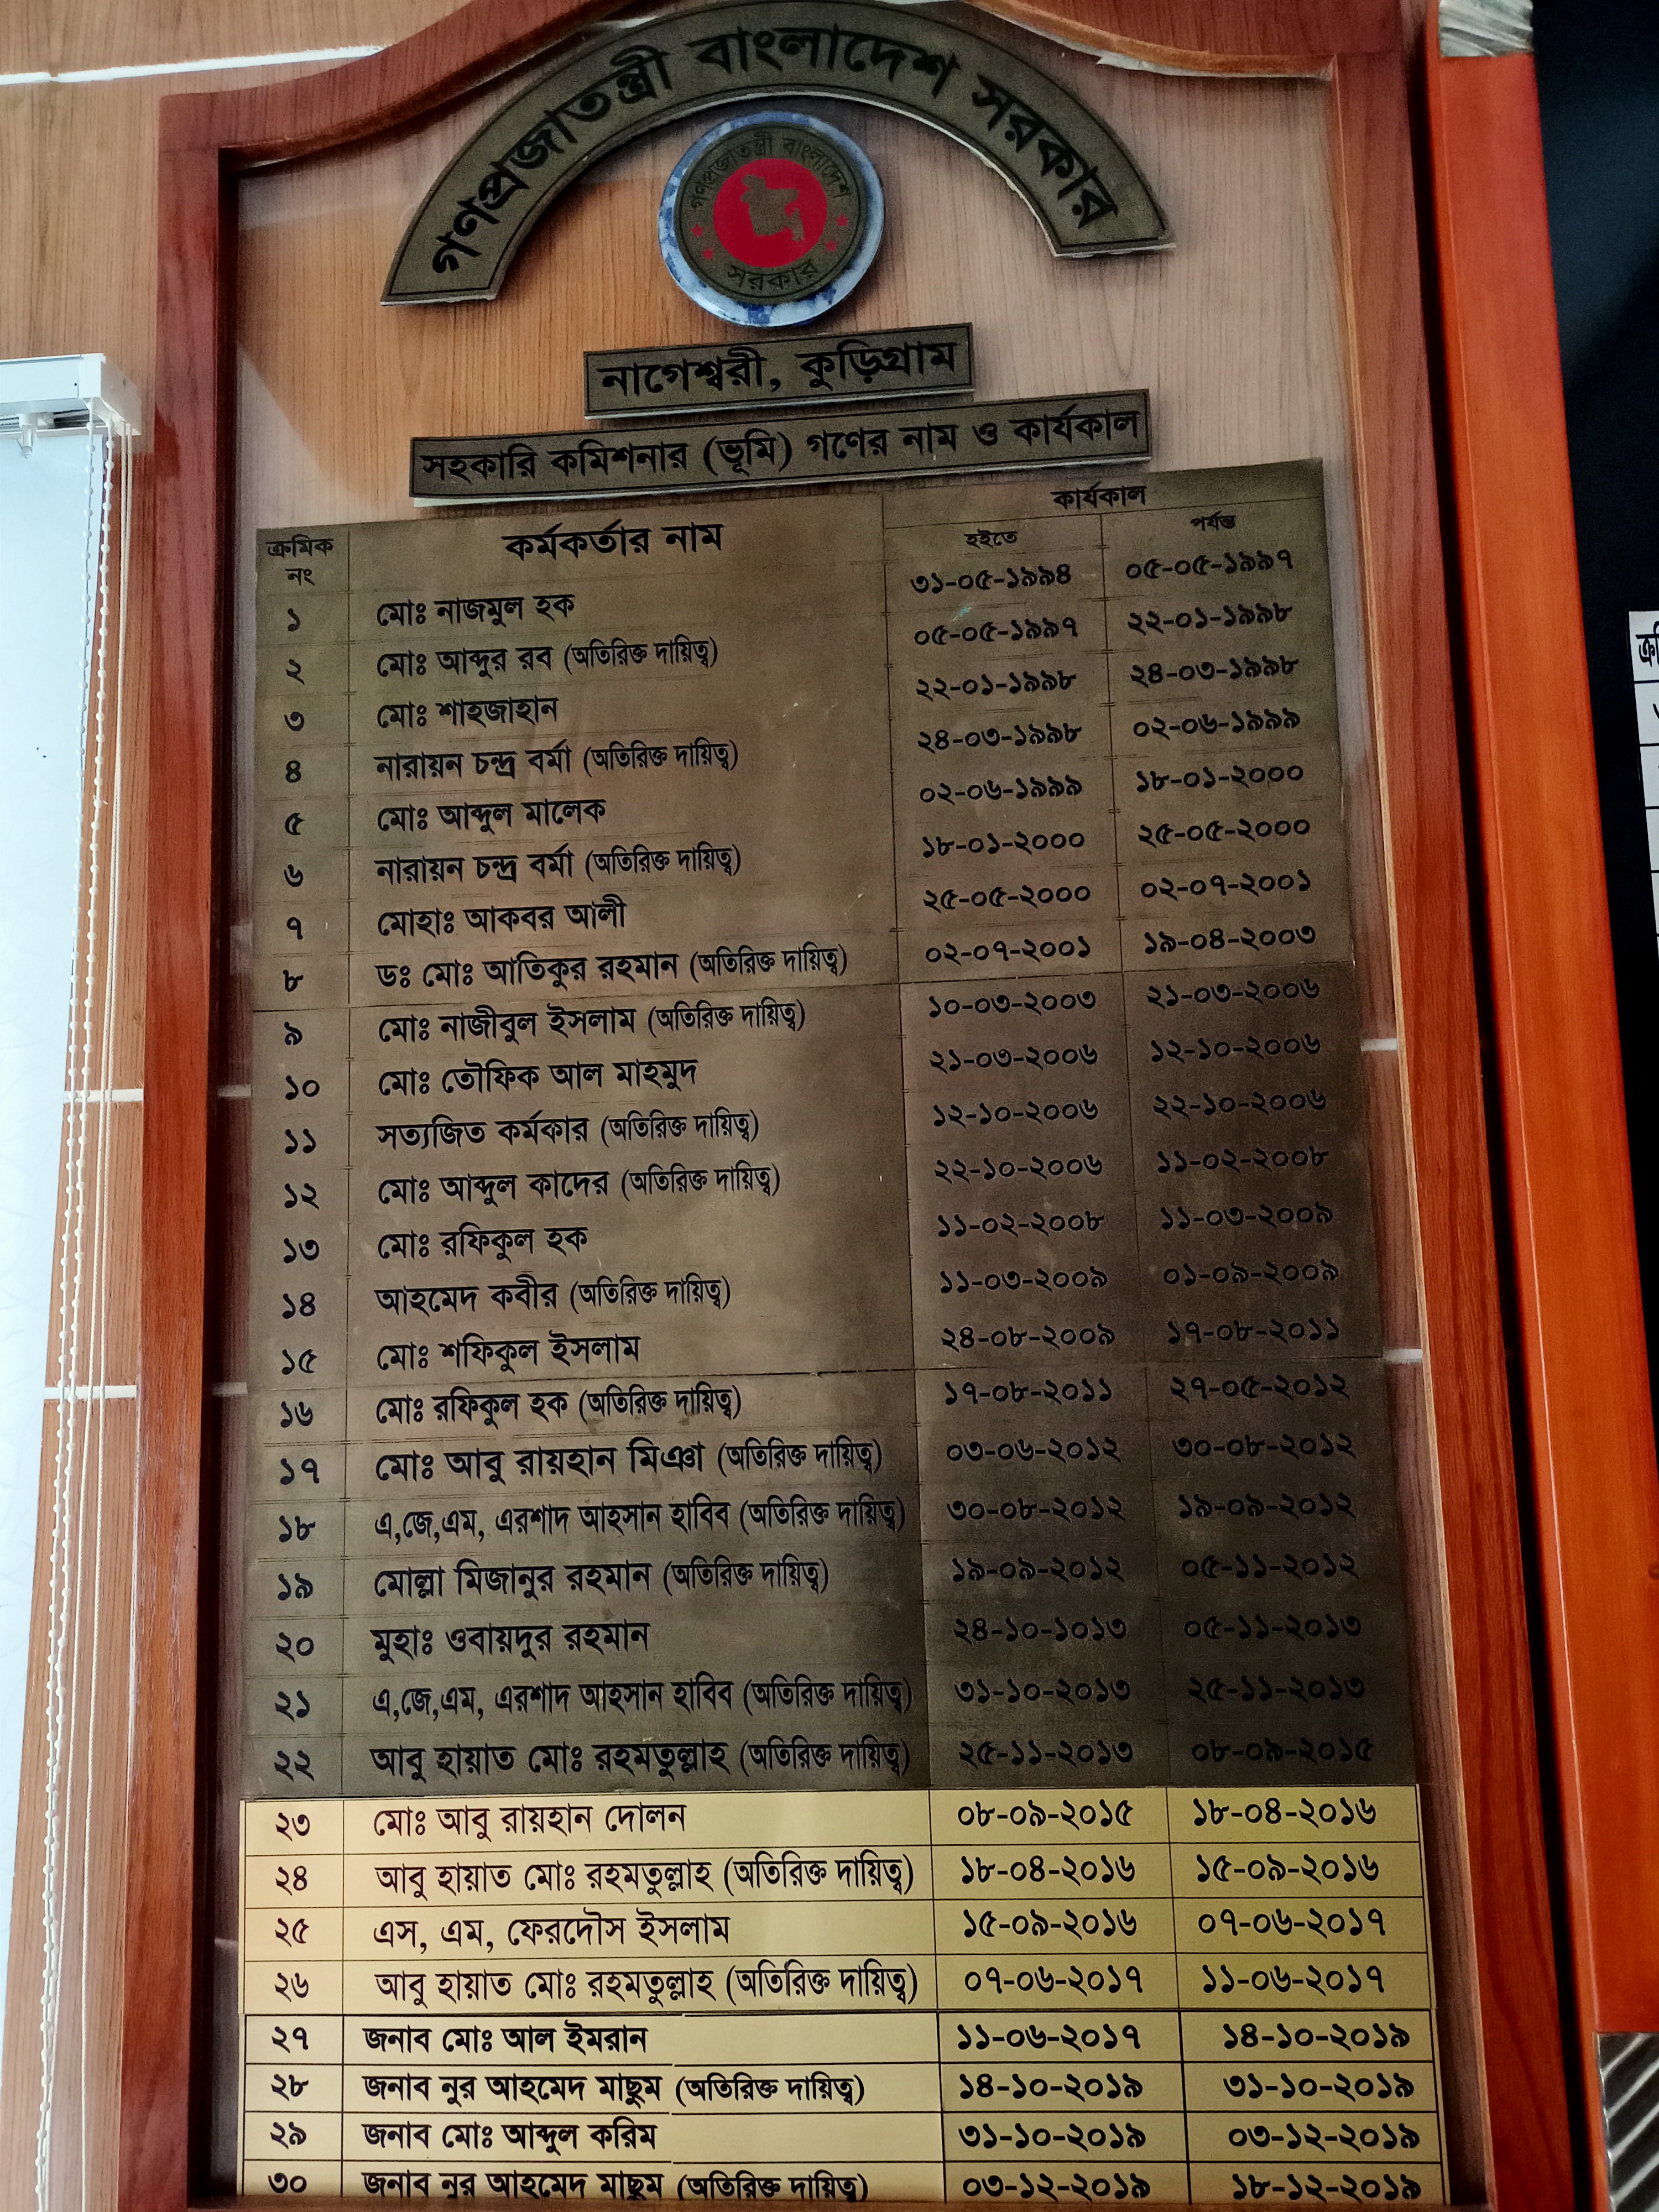 গণপ্রজাতন্ত্রী বাংলাদেশ সরকার
গণপ্রজাতন্ত্রী বাংলাদেশ
সরকার
নাগেশ্বরী, কুড়িগ্রাম
সহকারি কমিশনার (ভূমি) গণের নাম ও কার্যকাল
ক্রমিক নং কর্মকর্তার নাম কার্যকাল
হইতে পর্যন্ত
১ মোঃ নাজমুল হক ৩১-০৫-১৯৯৪ ০৫-০৫-১৯৯৭
২ মোঃ আব্দুর রব (অতিরিক্ত দায়িত্ব) ০৫-০৫-১৯৯৭ ২২-০১-১৯৯৮
৩ মোঃ শাহজাহান ২২-০১-১৯৯৮ ২৪-০৩-১৯৯৮
৪ নারায়ন চন্দ্র বর্মা (অতিরিক্ত দায়িত্ব) ২৪-০৩-১৯৯৮ ০২-০৬-১৯৯৯
৫ মোঃ আব্দুল মালেক ০২-০৬-১৯৯৯ ১৮-০১-২০০০
৬ নারায়ন চন্দ্র বর্মা (অতিরিক্ত দায়িত্ব) ১৮-০১-২০০০ ২৫-০৫-২০০০
৭ মোহাঃ আকবর আলী ২৫-০৫-২০০০ ০২-০৭-২০০১
৮ ডঃ মোঃ আতিকুর রহমান (অতিরিক্ত দায়িত্ব) ০২-০৭-২০০১ ১৯-০৪-২০০৩
৯ মোঃ নাজীবুল ইসলাম (অতিরিক্ত দায়িত্ব) ১০-০৩-২০০৩ ২১-০৩-২০০৬
১০ মোঃ তৌফিক আল মাহমুদ ২১-০৩-২০০৬ ১২-১০-২০০৬
১১ সত্যজিত কর্মকার (অতিরিক্ত দায়িত্ব) ১২-১০-২০০৬ ২২-১০-২০০৬
১২ মোঃ আব্দুল কাদের (অতিরিক্ত দায়িত্ব) ২২-১০-২০০৬ ১১-০২-২০০৮
১৩ মোঃ রফিকুল হক ১১-০২-২০০৮ ১১-০৩-২০০৯
১৪ আহমেদ কবীর (অতিরিক্ত দায়িত্ব) ১১-০৩-২০০৯ ০১-০৯-২০০৯
১৫ মোঃ শফিকুল ইসলাম ২৪-০৮-২০০৯ ১৭-০৮-২০১১
১৬ মোঃ রফিকুল হক (অতিরিক্ত দায়িত্ব) ১৭-০৮-২০১১ ২৭-০৫-২০১২
১৭ মোঃ আবু রায়হান মিঞা (অতিরিক্ত দায়িত্ব) ০৩-০৬-২০১২ ৩০-০৮-২০১২
১৮ এ,জে,এম, এরশাদ আহসান হাবিব (অতিরিক্ত দায়িত্ব) ৩০-০৮-২০১২ ১৯-০৯-২০১২
১৯ মোল্লা মিজানুর রহমান (অতিরিক্ত দায়িত্ব) ১৯-০৯-২০১২ ০৫-১১-২০১২
২০ মুহাঃ ওবায়দুর রহমান ২৪-১০-১০১৩ ০৫-১১-২০১৩
২১ এ,জে,এম, এরশাদ আহসান হাবিব (অতিরিক্ত দায়িত্ব) ৩১-১০-২০১৩ ২৫-১১-২০১৩
২২ আবু হায়াত মোঃ রহমতুল্লাহ (অতিরিক্ত দায়িত্ব) ২৫-১১-২০১৩ ০৮-০৯-২০১৫
২৩ মোঃ আবু রায়হান দোলন ০৮-০৯-২০১৫ ১৮-০৪-২০১৬
২৪ আবু হায়াত মোঃ রহমতুল্লাহ (অতিরিক্ত দায়িত্ব) ১৮-০৪-২০১৬ ১৫-০৯-২০১৬
২৫ এস, এম, ফেরদৌস ইসলাম ১৫-০৯-২০১৬ ০৭-০৬-২০১৭
২৬ আবু হায়াত মোঃ রহমতুল্লাহ (অতিরিক্ত দায়িত্ব) ০৭-০৬-২০১৭ ১১-০৬-২০১৭
২৭ জনাব মোঃ আল ইমরান ১১-০৬-২০১৭ ১৪-১০-২০১৯
২৮ জনাব নুর আহমেদ মাছুম (অতিরিক্ত দায়িত্ব) ১৪-১০-২০১৯ ৩১-১০-২০১৯
২৯ জনাব মোঃ আব্দুল করিম ৩১-১০-২০১৯ ০৩-১২-২০১৯
৩০ জনাব নুর আহমেদ মাছুম (অতিরিক্ত দায়িত্ব) ০৩-১২-২০১৯ ১৮-১২-২০১৯